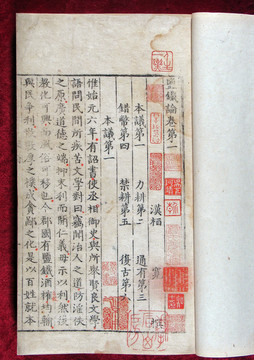 鹽鐵論卷第一
漢 桓 寬 撰
本議第一 力耕第二 通有第三
錯幣第四 禁耕第五 復古第六
本議第一
惟始元六年有詔書使丞相御史與所舉賢良文學
語問民間所疾苦文學對曰竊聞治人之道防淫佚
之原廣道德之端抑末利而開仁義毋示以利然後
教化可興而風俗可移也今郡國有鹽鐵酒榷均輸
與民爭利散敦厚之樸成貪鄙之化是以百姓就本